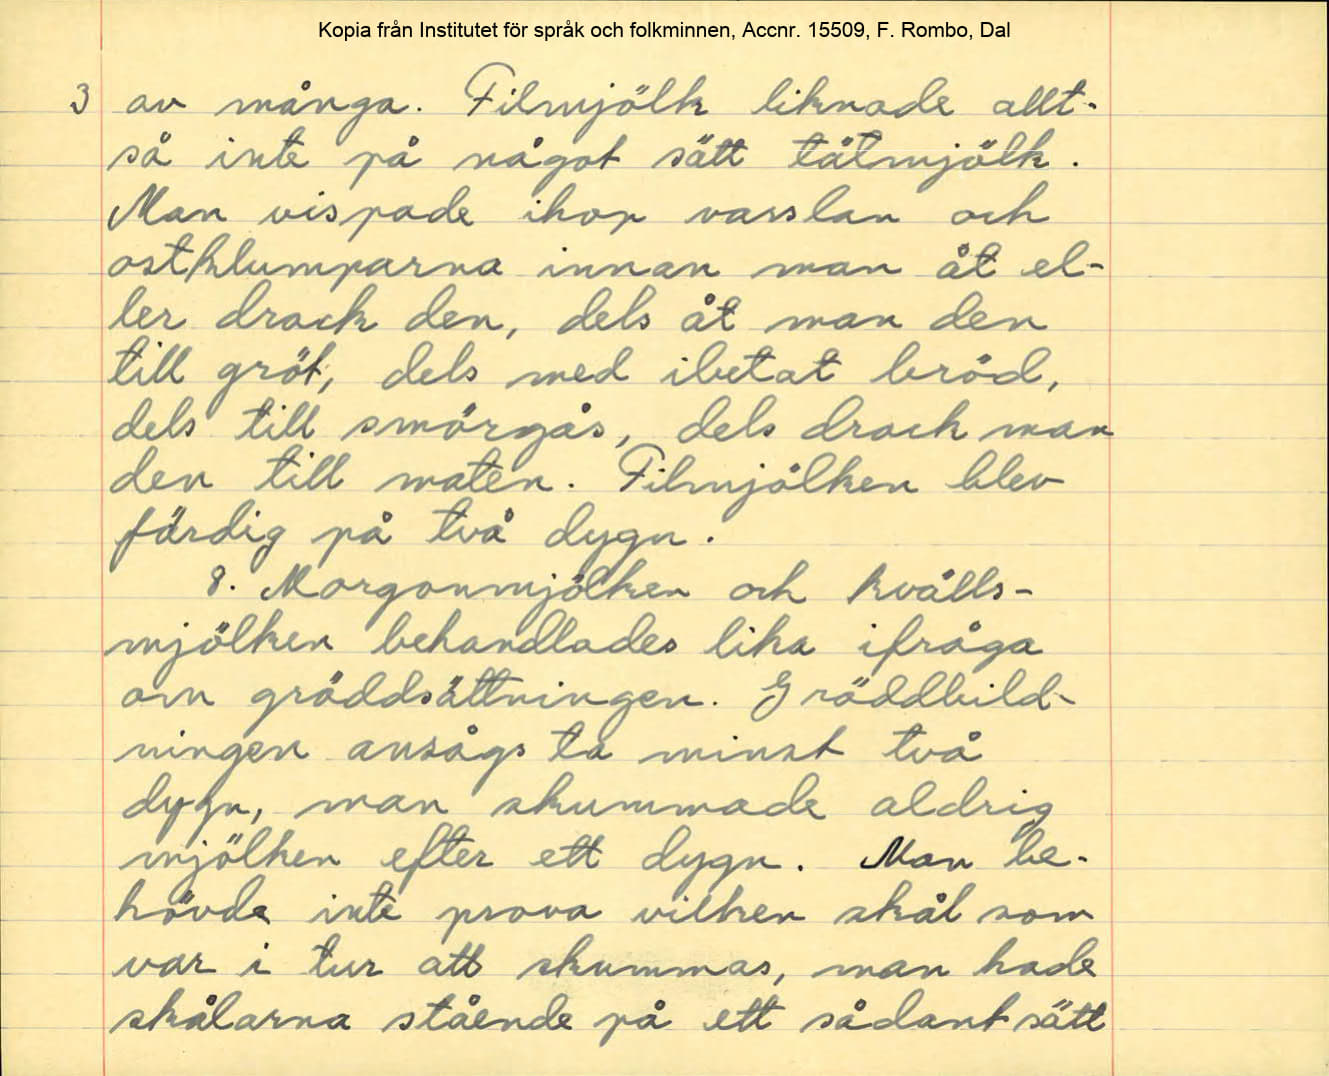 Kopia från Institutet för språk och folkminnen, Accnr. 15509, F. Rombo, Dal
3 av många. Filmjölk liknade allt-
så inte på något sätt tätmjölk.
Man vispade ihop vasslan och
ostklumparna innan man åt el-
ler drack den, dels åt man den
till gröt, dels med ibetat bröd,
dels till smörgås, dels drack man
den till maten. Filmjölken blev
färdig på två dygn.
8. Morgonmjölken och kvälls-
mjölken behandlades lika ifråga
om gräddsättningen. Gräddbild-
ningen ansågs ta minst två
dygn, man skummade aldrig
mjölken efter ett dygn. Man be-
hövde inte prova vilken skål som
var i tur att skummas, man hade
skålarna stående på ett sådant sätt